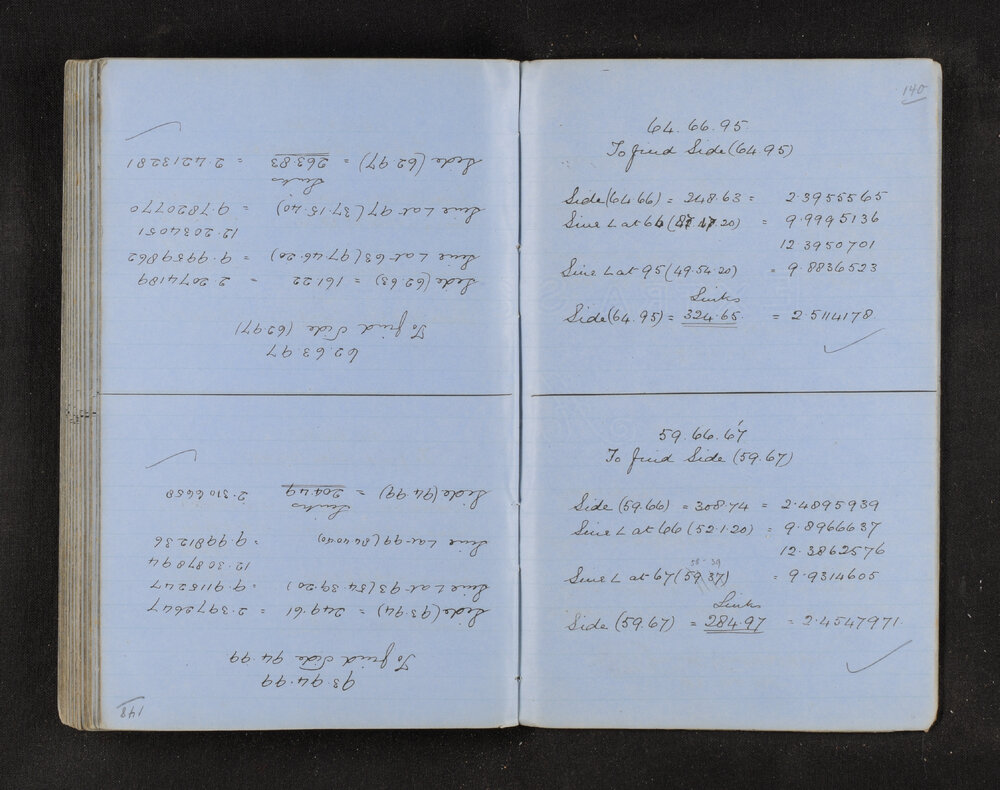 148
93.94.99
To find Side 94.99
Side (93.94) = 249.61 = 2.3972647
Sine L at 93 (54.39.20) = 9.9115247
12.3087894
Sine L at 99 (84.40.40) = 9.9981236
Links
Side (94.99) = 204.49 2.3106658
62.63.97
To find Side (62.97)
Side (62.63) = 161.22 = 2.2074189
Sine L at 63 (97.46.20) = 9.9959862
12.2034051
Sine L at 97 (37.15.40) = 9.7820770
Links
Side (62.97) = 263.83 = 2.4213281
140
64.66.95
To find Side (64.95)
Side (64.66) = 248.63 = 2.3955565
Sine L at 64 (87.17.20) = 9.9995136
12.3950701
Sine L at 95 (49.54.20) = 9.8836523
Links
Side (64.95) = 324.65 = 2.5114178
59.66.67
To find Side (59.67)
Side (59.66) = 308.74 = 2.4895939
Sine L at 66 (52.1.20) = 9.8966637
12.3862576
58.39
Sine L at 67 (59.37) = 9.9314605
Links
Side (59.67) = 284.97 = 2.4547971